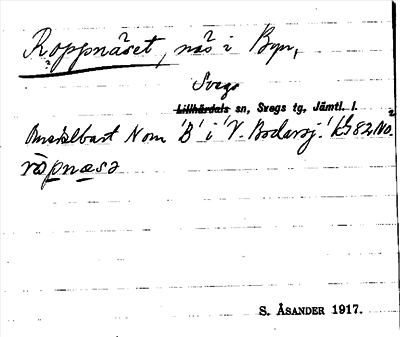 Roppnäset, näs i Byn,
Svegs
Lillhärdals sn, Svegs tg, Jämtl. l.
Omedelbart N om 'B' i 'V. Bodarsj.' kbl 82 No.
röpnæsə
S. ÅSANDER 1917.